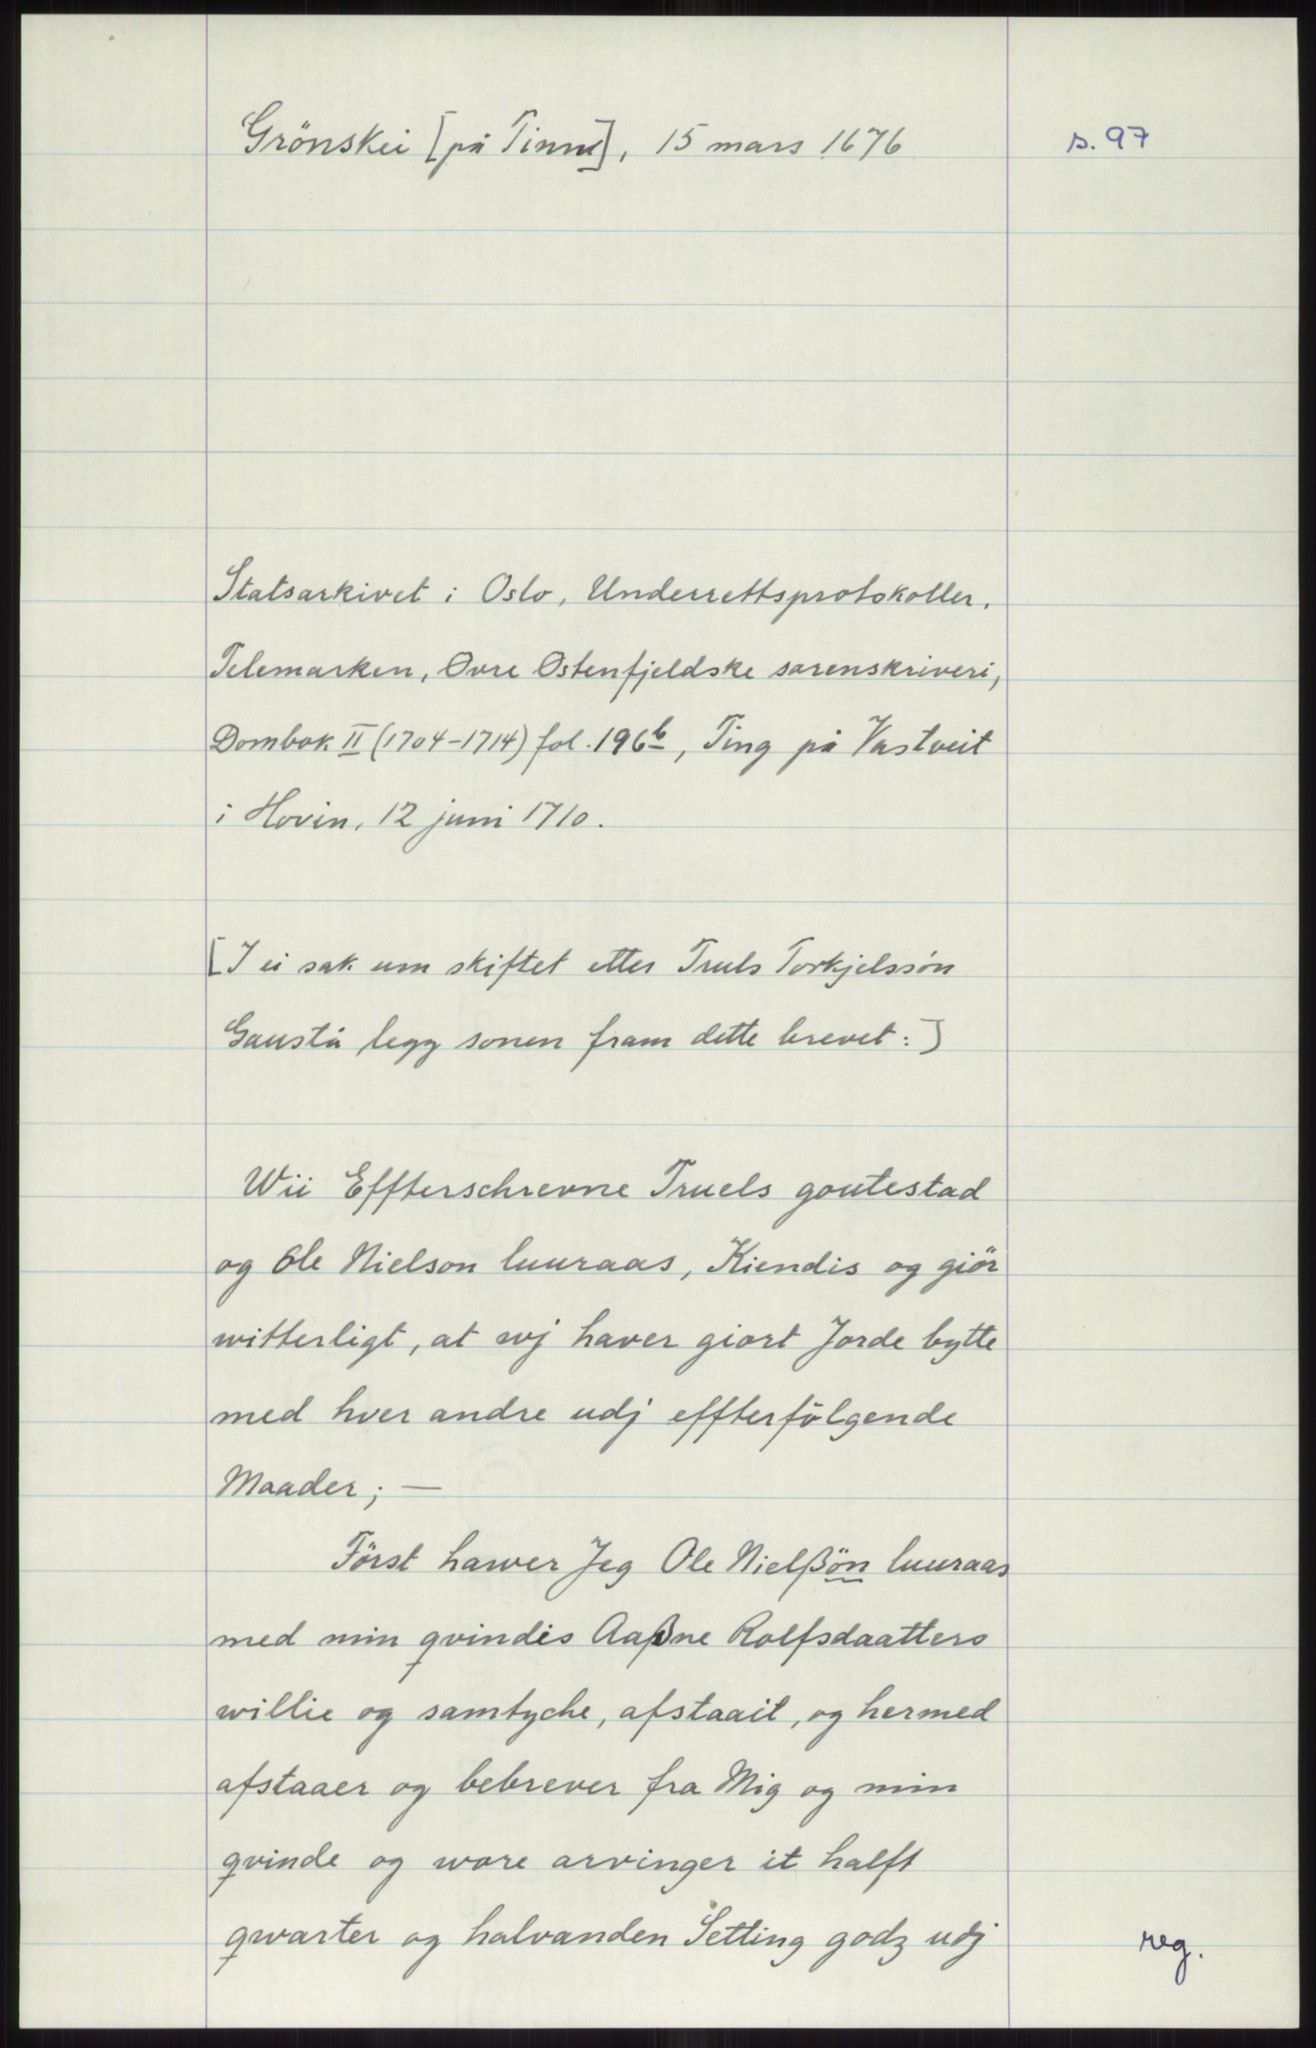 Grönskei [på Tinn], 15 mars 1676
s. 97
Statsarkivet i Oslo, Underrettsprotokoller,
Telemarken, Øvre Østenfjeldske sorenskriveri,
Dombok II (1704-1714) fol. 196b, Ting på Vastveit
i Hovin, 12 juni 1710.
[I ei sak um skiftet etter Truls Torkjelssön
Gaustå legg sonen fram dette brevet:]
Wii Effterschrevne Truels goutestad
og Ole Nielson luuraas, Kiendis og giör
witterligt, at wj haver giort Jorde bytte
med hver andre udj effterfölgende
Maader; —
Först hawer Jeg Ole Nielßön luuraas
med min qvindis Aaßne Rolfsdaatters
willie og samtyche, afstaait, og hermed
afstaaer og bebrever fra Mig og min
qvinde og wore arvinger it halft
qwarter og halvanden Setting godz udj
reg.